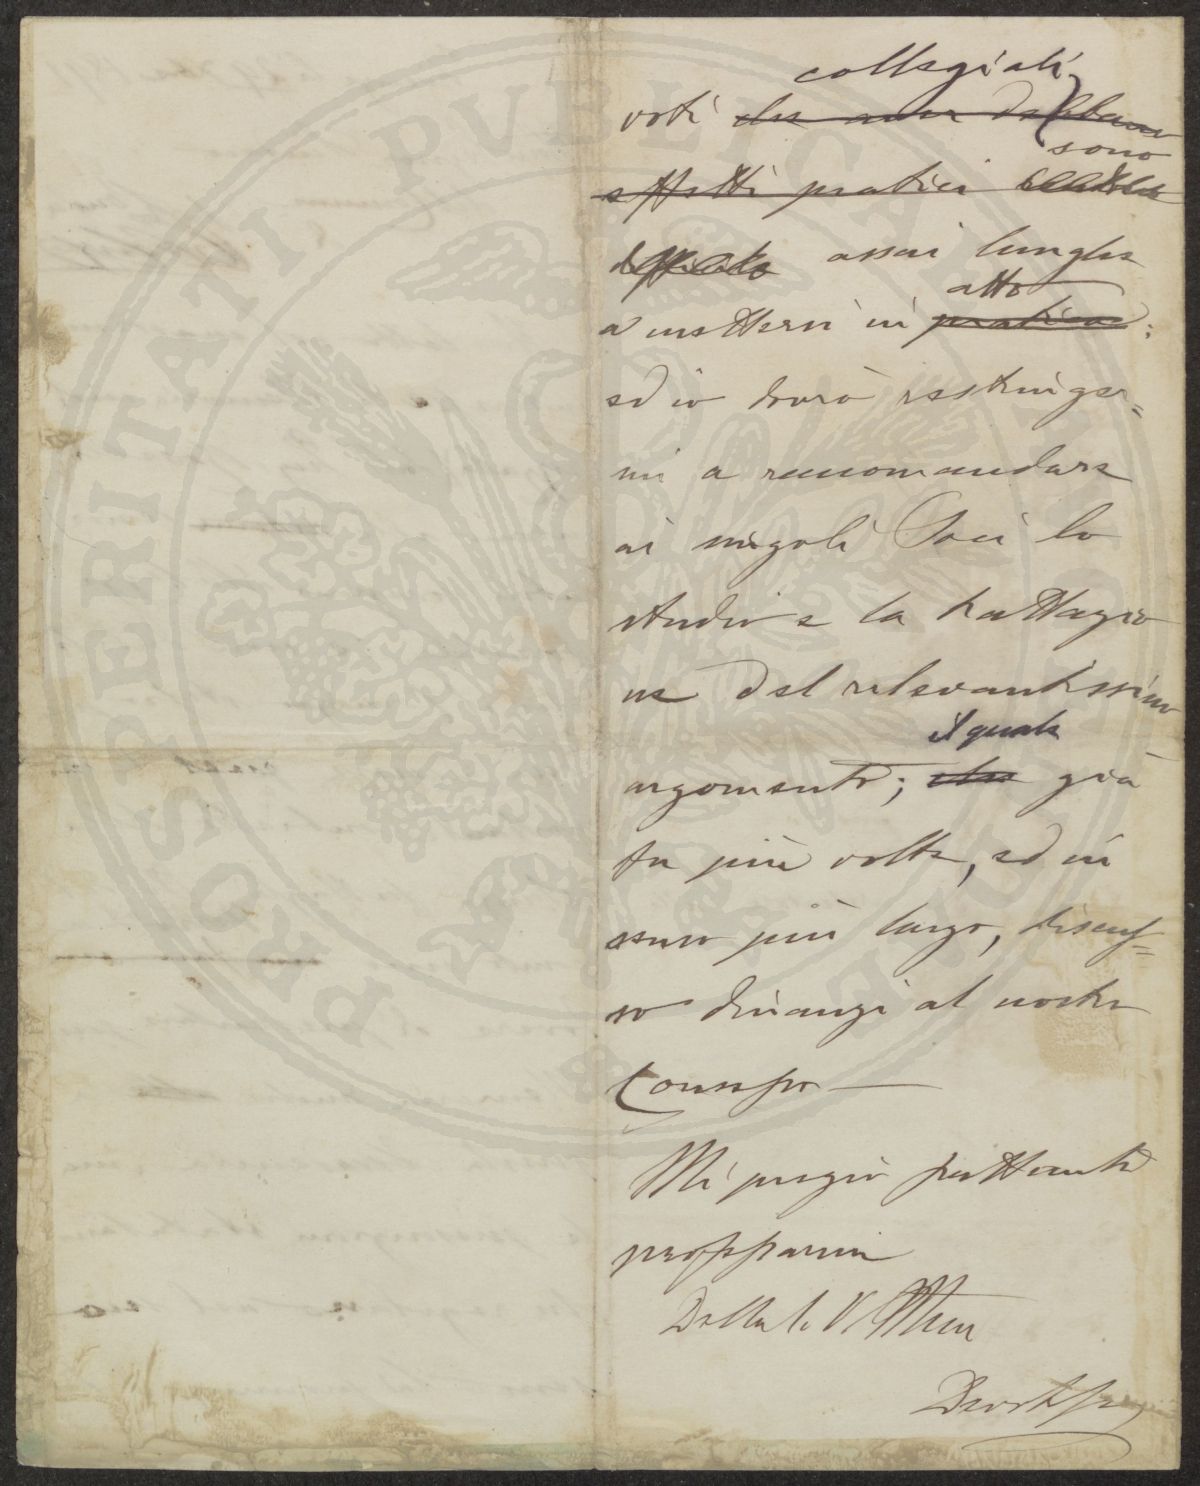 PROSPERITATI PVBLICAE
collegiali
voti che non debbano
sono
effetti pratici
assai lunghe
atto
a mettersi in pratica:
ed io dovrò restringer=
mi a raccomandare
ai singoli Soci lo
studio e la trattazio
ne del rilevantissimo
il quale
argomento; che già
fu più volte, ed in
senso più largo, discus=
so dinanzi al nostro
Consesso —
Mi pregio frattanto
professarmi
Della S. V. Ill.ma
Devot.